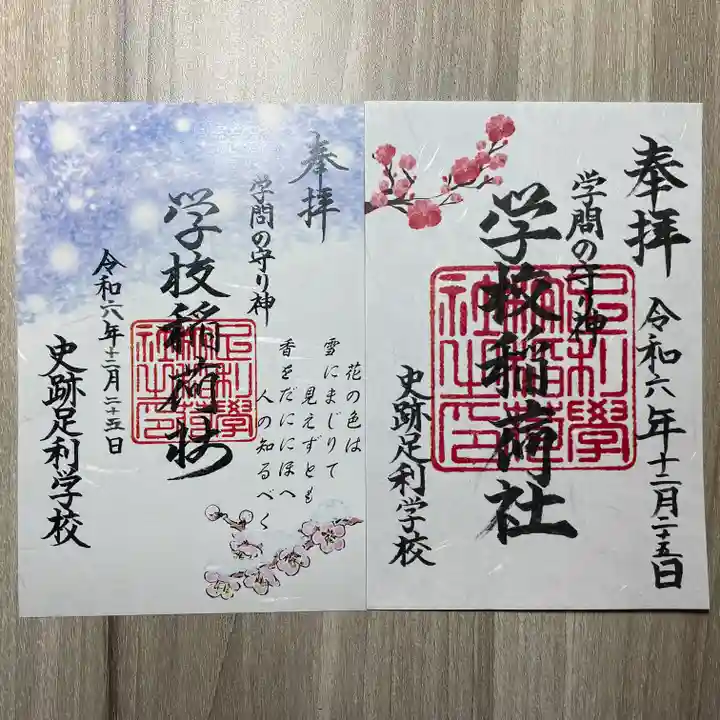 奉拝
学問の守り神
学校稲荷社
足利學
校稲荷
社之印
令和六年十二月二十五日
史跡足利学校
花の色は
雪にまじりて
見えずとも
香をだににほへ
人の知るべく
奉拝
学問の守り神
学校稲荷社
足利學
校稲荷
社之印
令和六年十二月二十五日
史跡足利学校